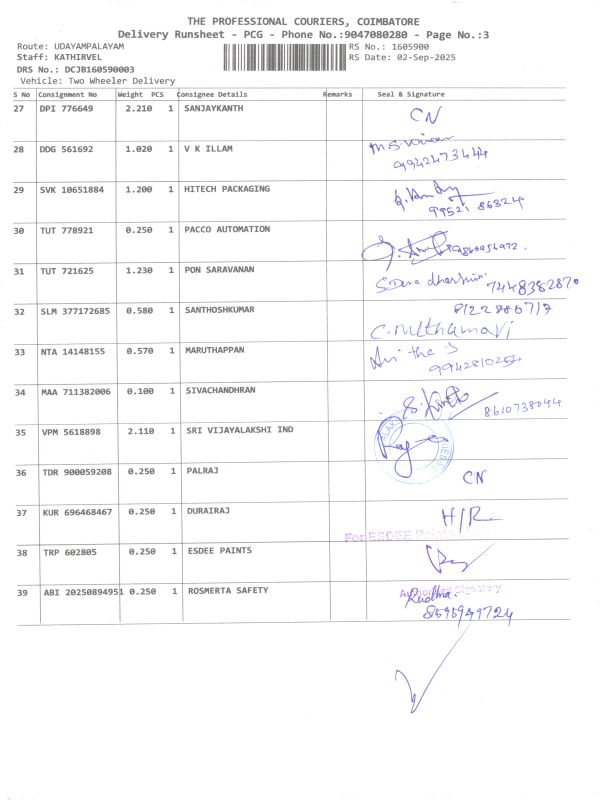 THE PROFESSIONAL COURIERS, COIMBATORE
Delivery Runsheet - PCG - Phone No.:9047080280 - Page No.:3
Route: UDAYAMPALAYAM RS No.: 1605900
Staff: KATHIRVEL RS Date: 02-Sep-2025
DRS No.: DCJB160590003
Vehicle: Two Wheeler Delivery
S No Consignment No Weight PCS Consignee Details Remarks Seal & Signature
27 DPI 776649 2.210 1 SANJAYKANTH CN
28 DDG 561692 1.020 1 V K ILLAM
9942473444
29 SVK 10651884 1.200 1 HITECH PACKAGING
99521 86324
30 TUT 778921 0.250 1 PACCO AUTOMATION
31 TUT 721625 1.230 1 PON SARAVANAN
7448382870
32 SLM 377172685 0.580 1 SANTHOSHKUMAR
33 NTA 14148155 0.570 1 MARUTHAPPAN
9942810254
34 MAA 711382006 0.100 1 SIVACHANDHRAN
8610738044
35 VPM 5618898 2.110 1 SRI VIJAYALAKSHI IND
36 TDR 900059208 0.250 1 PALRAJ CN
37 KUR 696468467 0.250 1 DURAIRAJ H/R
For ESDEE Paints
38 TRP 602805 0.250 1 ESDEE PAINTS
39 ABI 20250894951 0.250 1 ROSMERTA SAFETY
Authorised Signatory
8595949724